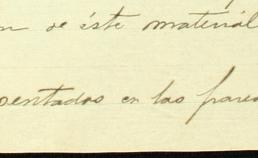 n de éste material
sentados en las pared